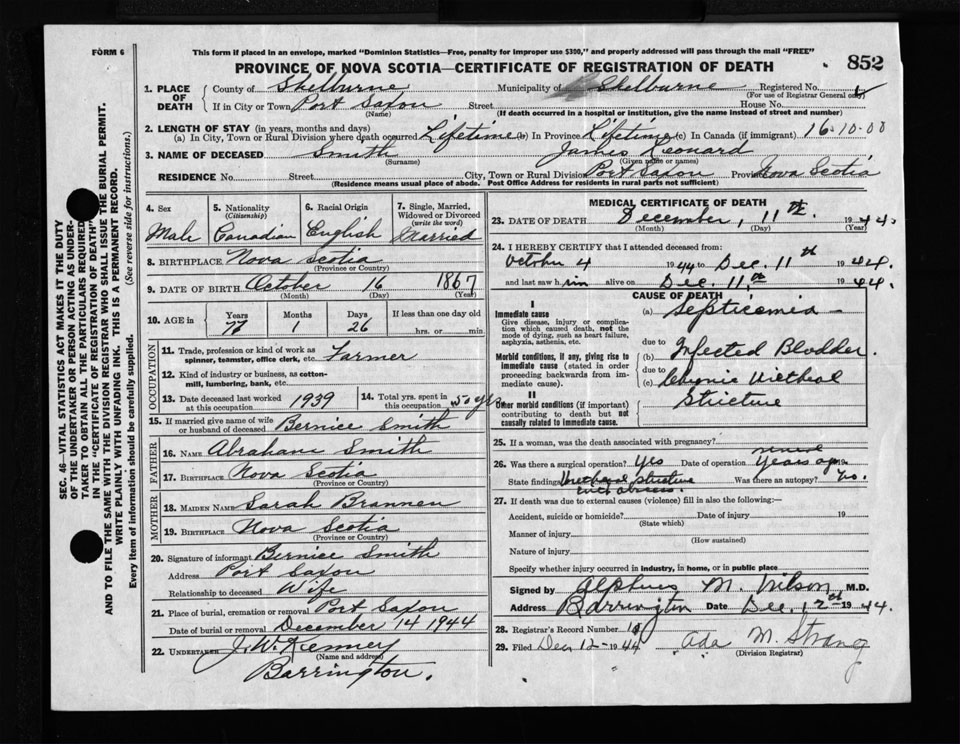 FORM 6
This form if placed in an envelope, marked "Dominion Statistics—Free, penalty for improper use $300," and properly addressed will pass through the mail "FREE"
PROVINCE OF NOVA SCOTIA—CERTIFICATE OF REGISTRATION OF DEATH
852
1. PLACE OF DEATH
County of Shelburne Municipality of Shelburne Registered No.
(For use of Registrar General only)
If in City or Town Port Saxon Street House No.
(Name) (If death occurred in a hospital or institution, give the name instead of street and number)
2. LENGTH OF STAY (in years, months and days)
(a) In City, Town or Rural Division where death occurred Lifetime (b) In Province Lifetime (c) In Canada (if immigrant) 16-10-00
3. NAME OF DECEASED Smith James Leonard
(Surname) (Given name or names)
RESIDENCE No. Street City, Town or Rural Division Port Saxon Province Nova Scotia
(Residence means usual place of abode. Post Office Address for residents in rural parts not sufficient)
4. Sex
Male
5. Nationality
(Citizenship)
Canadian
6. Racial Origin
English
7. Single, Married, Widowed or Divorced
(write the word)
Married
8. BIRTHPLACE Nova Scotia
(Province or Country)
9. DATE OF BIRTH October 16 1867
(Month) (Day) (Year)
10. AGE in
Years Months Days If less than one day old
77 1 26 hrs. or min.
OCCUPATION
11. Trade, profession or kind of work as
spinner, teamster, office clerk, etc. Farmer
12. Kind of industry or business, as cotton-
mill, lumbering, bank, etc.
13. Date deceased last worked
at this occupation 1939
14. Total yrs. spent in
this occupation 50 yrs
15. If married give name of wife
or husband of deceased Bernice Smith
FATHER
16. NAME Abraham Smith
17. BIRTHPLACE Nova Scotia
(Province or Country)
MOTHER
18. MAIDEN NAME Sarah Brannen
19. BIRTHPLACE Nova Scotia
(Province or Country)
20. Signature of informant Bernice Smith
Address Port Saxon
Relationship to deceased Wife
21. Place of burial, cremation or removal Port Saxon
Date of burial or removal December 14 1944
22. UNDERTAKER J. W. Kenney
(Name and address)
Barrington.
MEDICAL CERTIFICATE OF DEATH
23. DATE OF DEATH December, 11th. 1944.
(Month) (Day) (Year)
24. I HEREBY CERTIFY that I attended deceased from:
October 4 1944 to Dec. 11th 1944.
and last saw him alive on Dec. 11th 1944.
CAUSE OF DEATH
I
Immediate cause
Give disease, injury or complication which caused death, not the mode of dying, such as heart failure, asphyxia, asthenia, etc.
(a) Septicemia –
due to
Morbid conditions, if any, giving rise to immediate cause (stated in order proceeding backwards from immediate cause).
(b) Infected Bladder.
due to
(c) Chronic Urethral
Stricture
II
Other morbid conditions (if important) contributing to death but not causally related to immediate cause.
25. If a woman, was the death associated with pregnancy?
26. Was there a surgical operation? Yes Date of operation Years ago 19
State findings Urethral stricture Was there an autopsy? No.
27. If death was due to external causes (violence) fill in also the following:—
Accident, suicide or homicide? Date of injury 19
(State which)
Manner of injury
(How sustained)
Nature of injury
Specify whether injury occurred in industry, in home, or in public place
Signed by Alpheus M. Wilson, M.D.
Address Barrington Date Dec. 12th 1944.
28. Registrar's Record Number
29. Filed Dec 12- 1944 Ada M. Strang
(Division Registrar)
SEC. 46—VITAL STATISTICS ACT MAKES IT THE DUTY
OF THE UNDERTAKER OR PERSON ACTING AS UNDER-
TAKER TO OBTAIN ALL THE PARTICULARS REQUIRED
IN THE "CERTIFICATE OF REGISTRATION OF DEATH"
AND TO FILE THE SAME WITH THE DIVISION REGISTRAR WHO SHALL ISSUE THE BURIAL PERMIT.
WRITE PLAINLY WITH UNFADING INK. THIS IS A PERMANENT RECORD.
Every item of information should be carefully supplied. (See reverse side for instructions.)